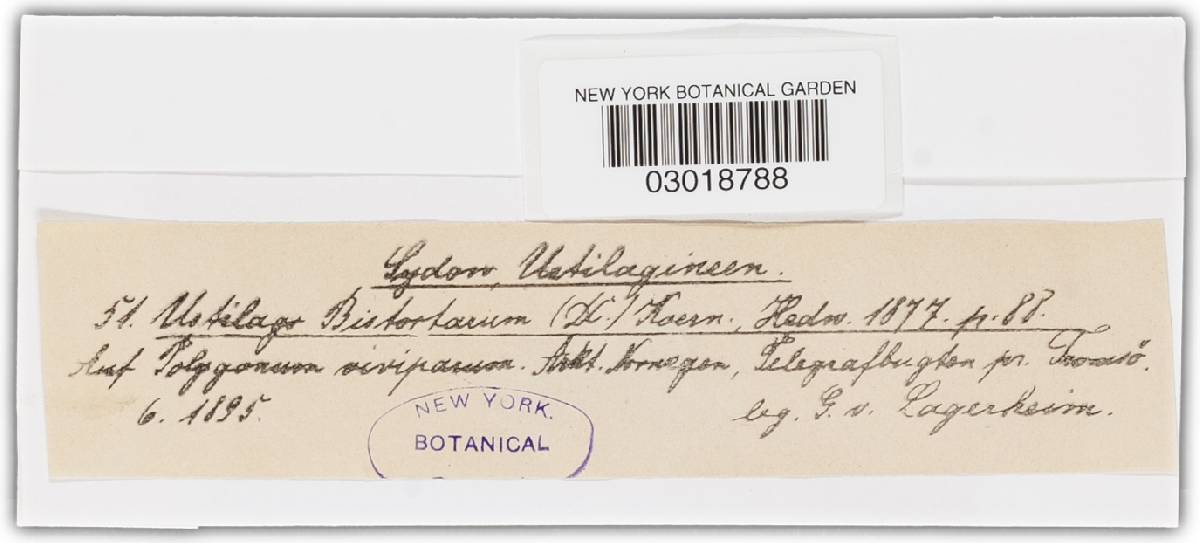 NEW YORK BOTANICAL GARDEN
03018788
Sydow, Ustilagineen.
51. Ustilago Bistortarum (DC.) Koern., Hedw. 1877. p. 88.
Auf Polygonum viviparum. Arkt. Norwegen, Telegrafbugten pr. Tromsö.
6. 1895.
leg. G. v. Lagerheim.
NEW YORK.
BOTANICAL